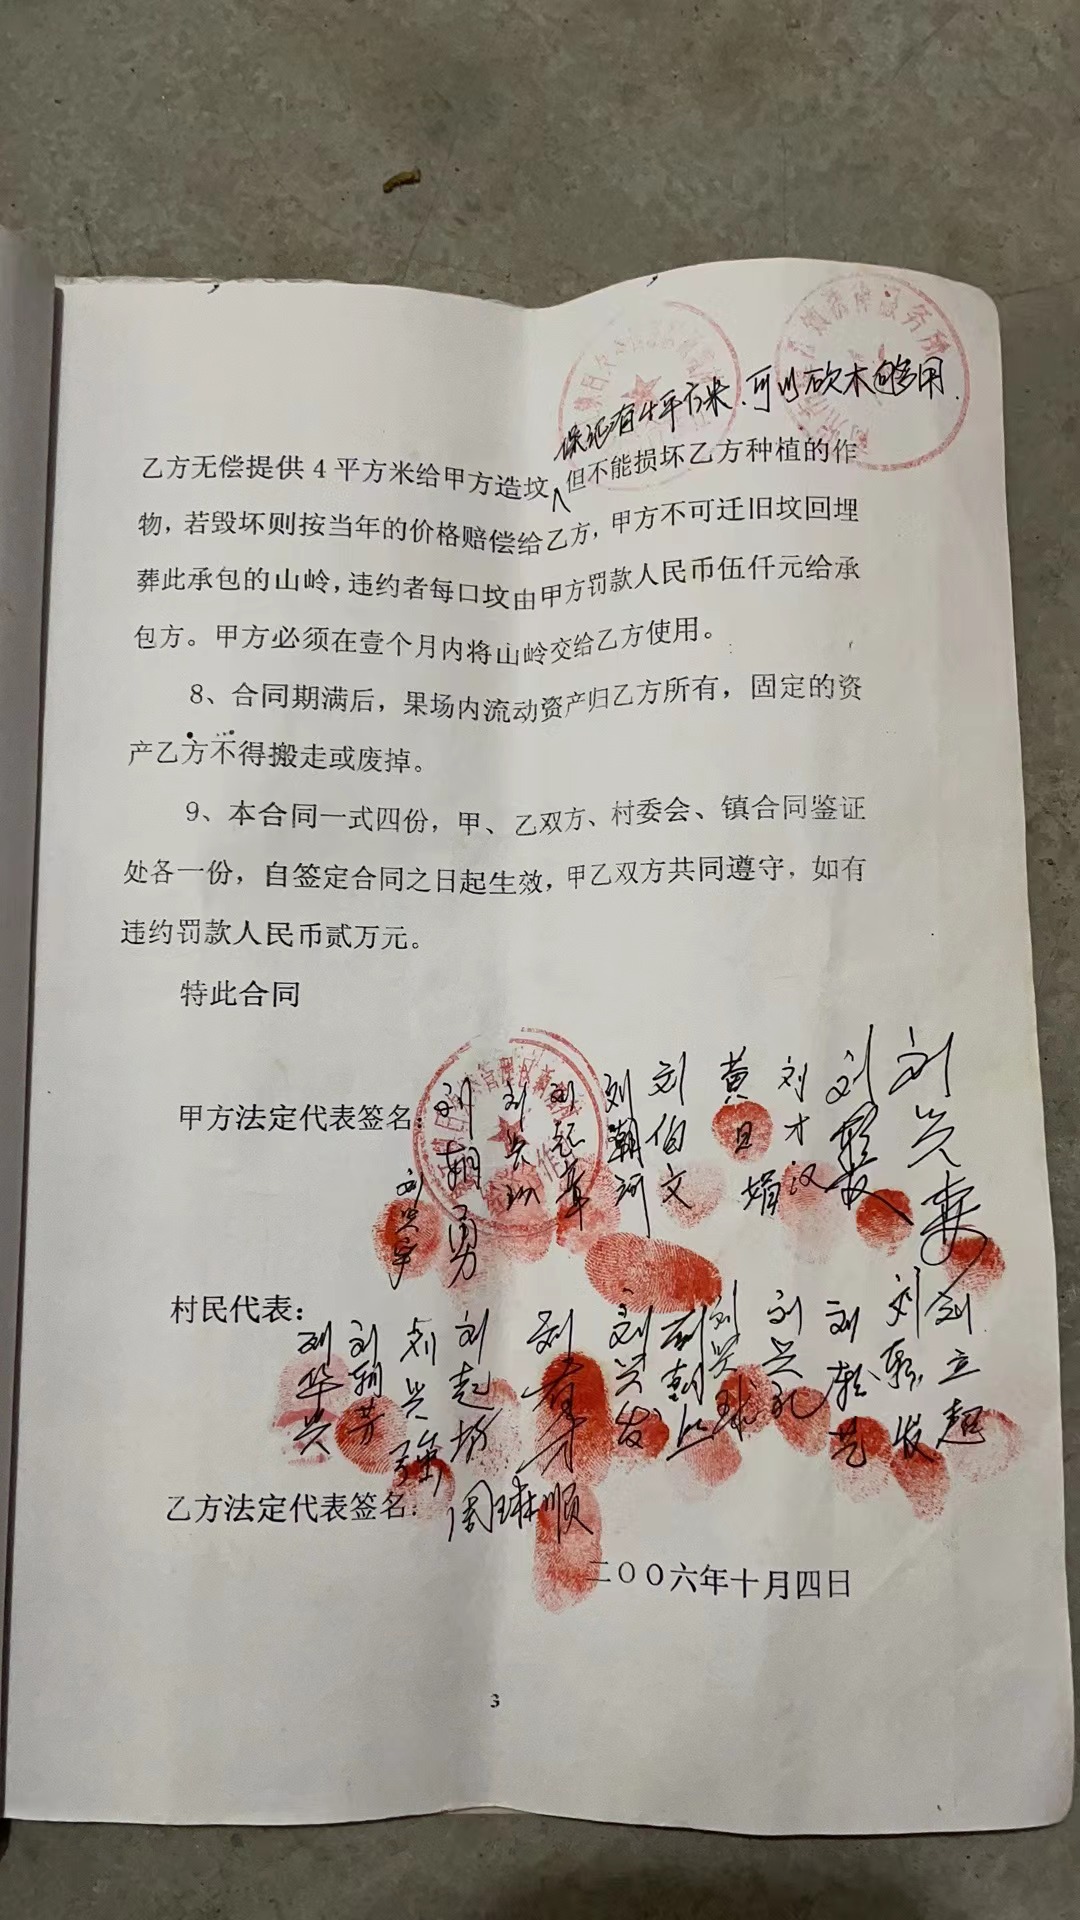 保证有4平方米.可以砍木够用.
乙方无偿提供4平方米给甲方造坟,但不能损坏乙方种植的作
物,若毁坏则按当年的价格赔偿给乙方,甲方不可迁旧坟回埋
葬此承包的山岭,违约者每口坟由甲方罚款人民币伍仟元给承
包方。甲方必须在壹个月内将山岭交给乙方使用。
8、合同期满后,果场内流动资产归乙方所有,固定的资
产乙方不得搬走或废掉。
9、本合同一式四份,甲、乙双方、村委会、镇合同鉴证
处各一份,自签定合同之日起生效,甲乙双方共同遵守,如有
违约罚款人民币贰万元。
特此合同
甲方法定代表签名:
刘兴宇
刘朝勇
刘起章
刘潮河
刘伯文
黄旦娟
刘才汉
村民代表:
刘华兴
刘朝芳
刘兴强
刘起坊
刘兴发
刘兴球
刘兴礼
刘立超
乙方法定代表签名:周球顺
二〇〇六年十月四日
3